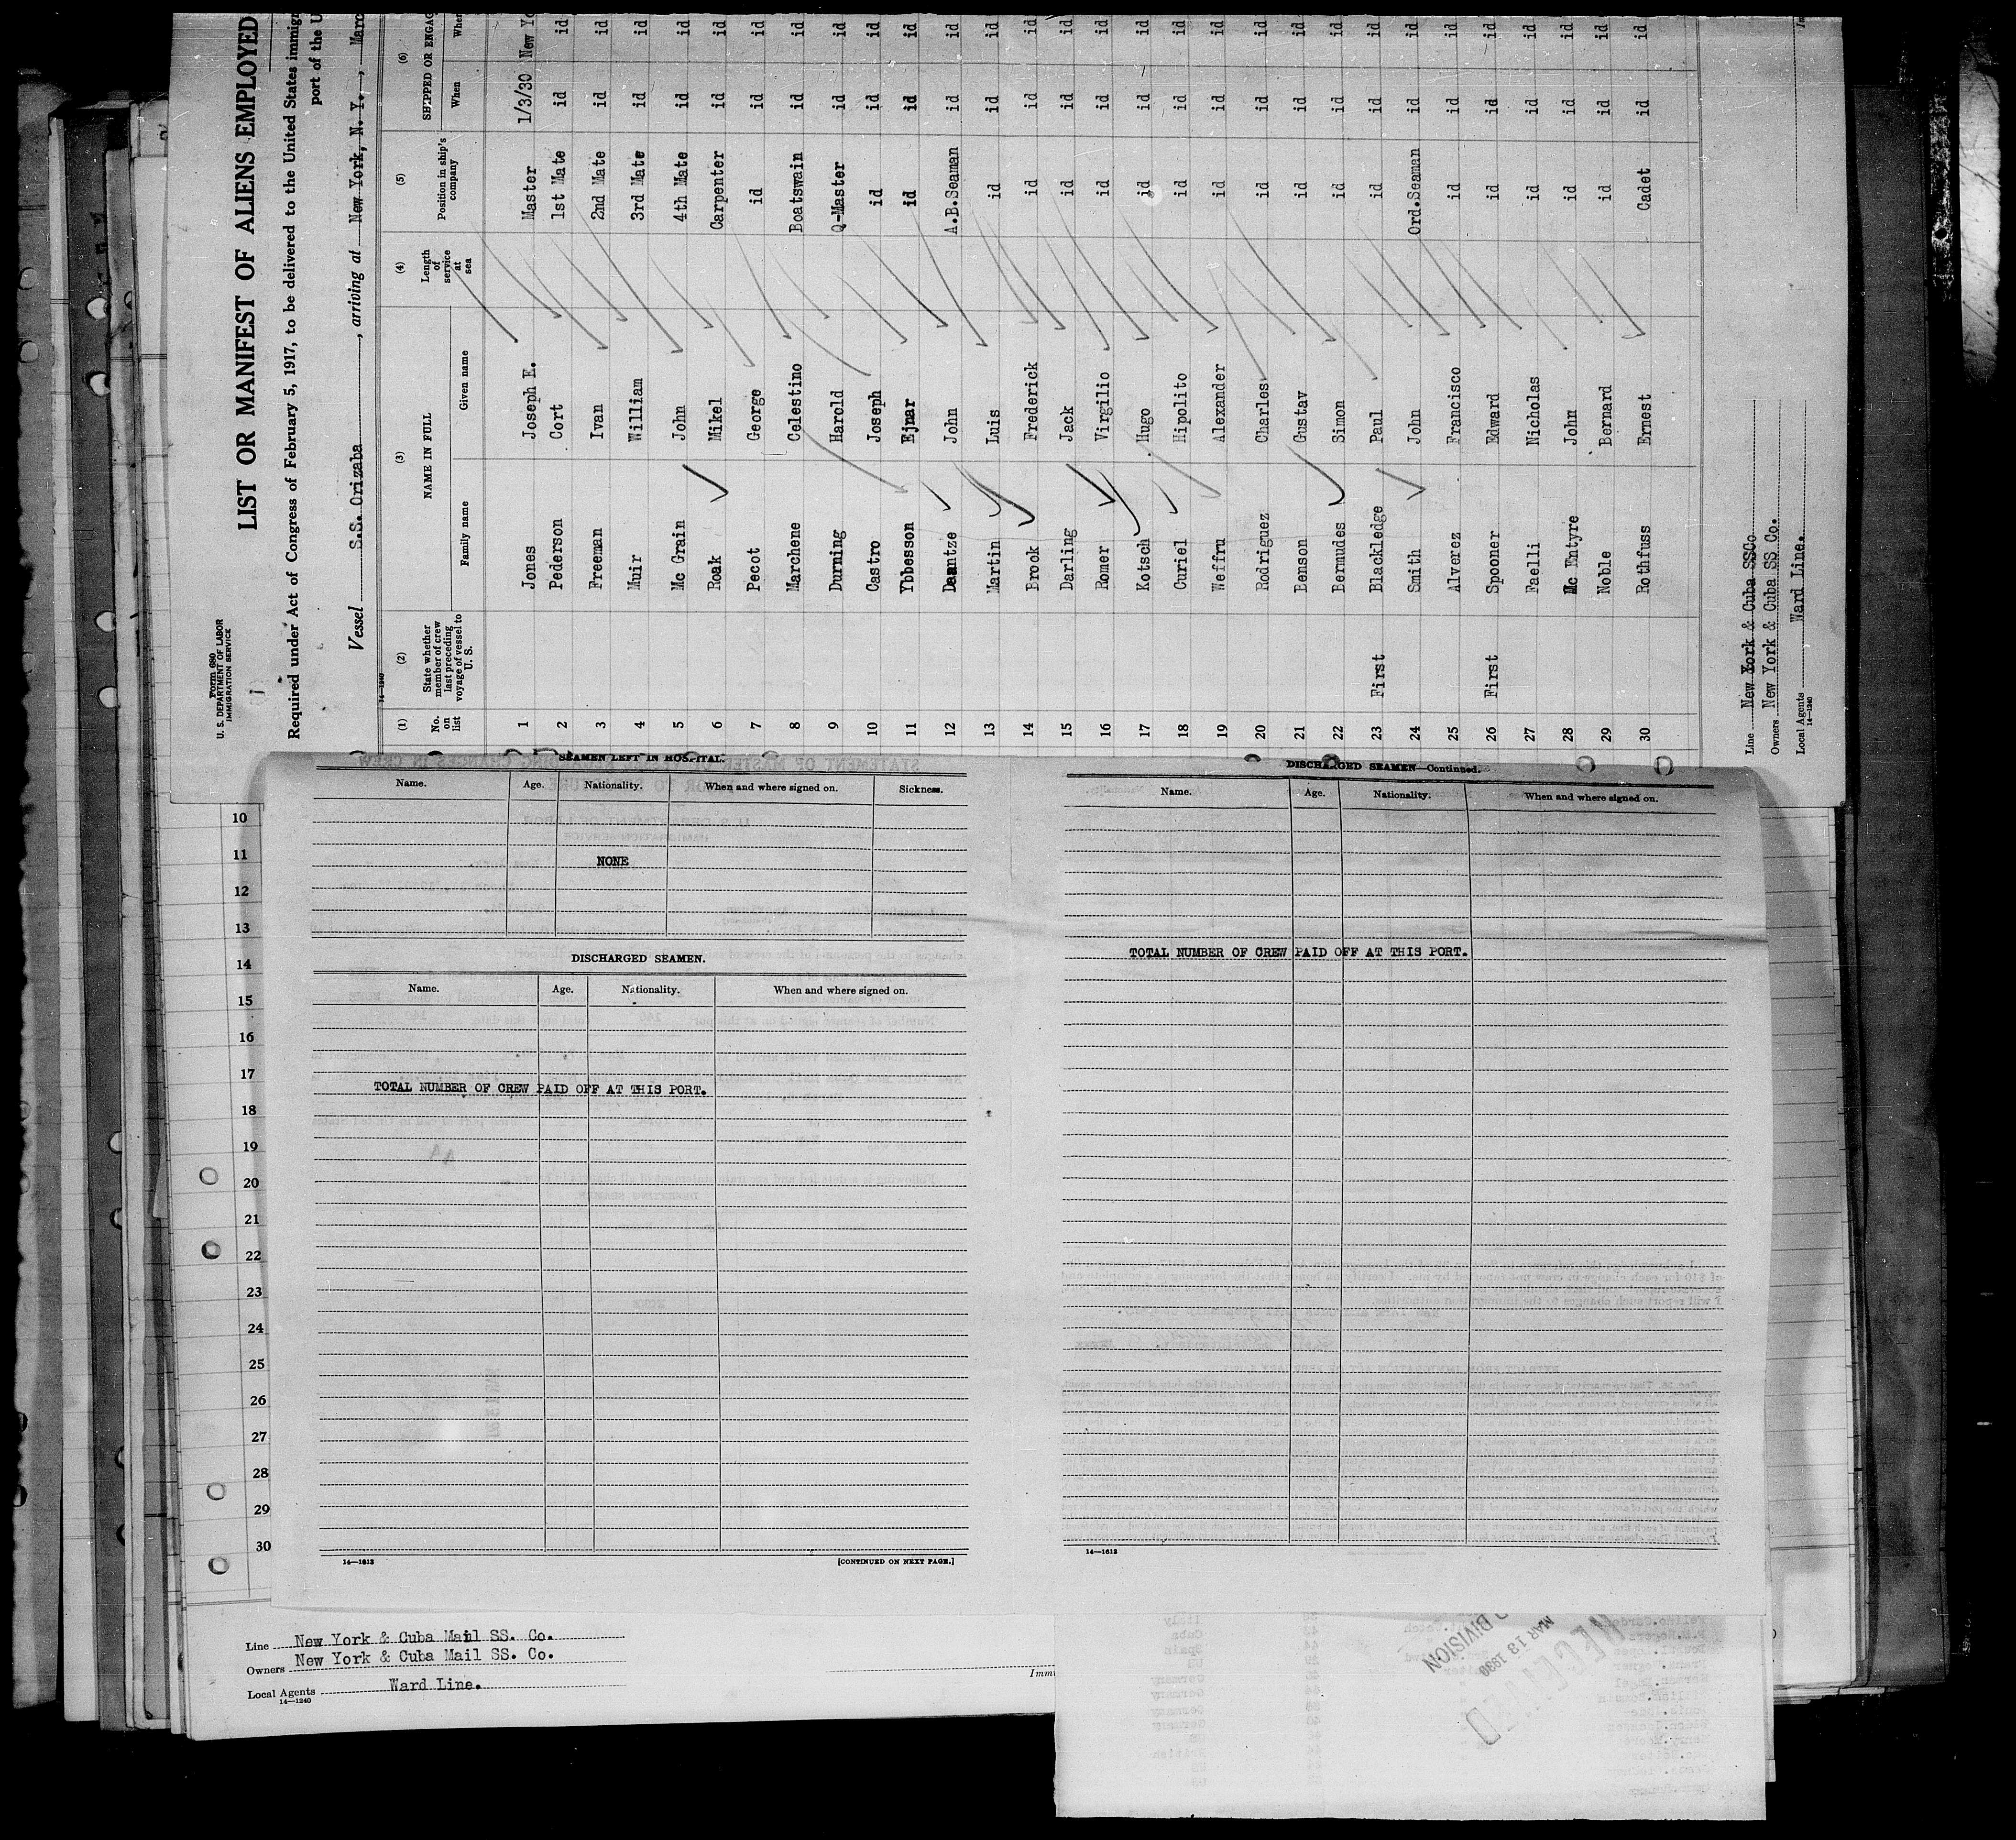 Form 680
U. S. DEPARTMENT OF LABOR
IMMIGRATION SERVICE
LIST OR MANIFEST OF ALIENS EMPLOYED
Required under Act of Congress of February 5, 1917, to be delivered to the United States
port of the
Vessel S.S. Orizaba, arriving at New York, N. Y.,
14-1240
(1) (2) (3) (4) (5) (6)
No. on list State whether member of crew last preceding voyage of vessel to U. S. NAME IN FULL Length of service at sea Position in ship's company SHIPPED OR
Family name Given name When
1 Jones Joseph E. Master 1/3/30 New
2 Pederson Cort 1st Mate id id
3 Freeman Ivan 2nd Mate id id
4 Muir William 3rd Mate id id
5 Mc Grain John 4th Mate id id
6 Roak Mikel Carpenter id id
7 Pecot George id id id
8 Marchene Celestino Boatswain id id
9 Durning Harold Q-Master id id
10 Castro Joseph id id id
11 Ybbesson Ejnar id id id
12 John A.B.Seaman id id
13 Martin Luis id id id
14 Brook Frederick id id id
15 Darling Jack id id id
16 Romer Virgilio id id id
17 Kotsch Hugo id id id
18 Curiel Hipolito id id id
19 Weffru Alexander id id id
20 Rodriguez Charles id id id
21 Benson Gustav id id id
22 Bermudes Simon id id id
23 First Blackledge Paul id id id
24 Smith John Ord.Seaman id id
25 Alverez Francisco id id id
26 First Spooner Edward id id id
27 Faelli Nicholas id id id
28 Mc Entyre John id id id
29 Noble Bernard id id id
30 Rothfuss Ernest Cadet id id
Line New York & Cuba SSCo
Owners New York & Cuba SS Co.
Local Agents Ward Line.
14-1240
SEAMEN LEFT IN HOSPITAL.
Name. Age. Nationality. When and where signed on. Sickness.
NONE
DISCHARGED SEAMEN.
Name. Age. Nationality. When and where signed on.
TOTAL NUMBER OF CREW PAID OFF AT THIS PORT.
14—1613 [CONTINUED ON NEXT PAGE.]
DISCHARGED SEAMEN—Continued.
Name. Age. Nationality. When and where signed on.
TOTAL NUMBER OF CREW PAID OFF AT THIS PORT.
14—1613
10
11
12
13
14
15
16
17
18
19
20
21
22
23
24
25
26
27
28
29
30
Line New York & Cuba Mail SS. Co.
Owners New York & Cuba Mail SS. Co.
Local Agents Ward Line.
14—1240
DIVISION
MAR 13 1930